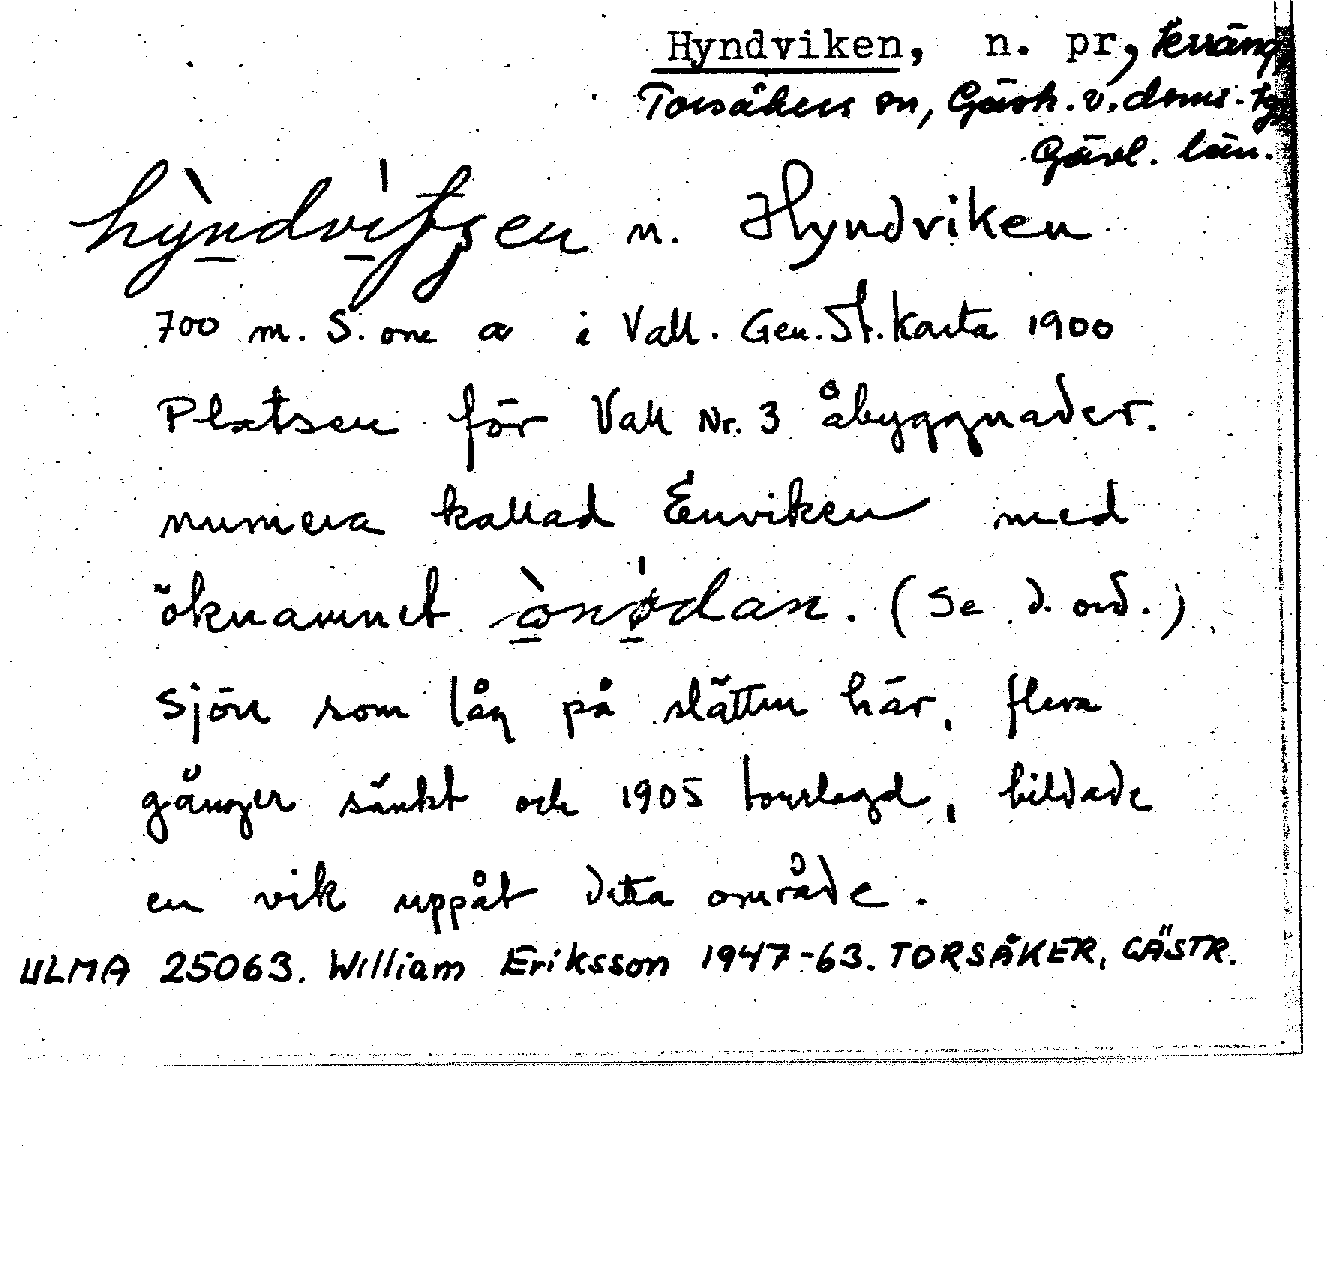 Hyndviken, n. pr, terräng
Torsåkers sn, Gästr. v. doms. tg
Gävl. län.
hyndvitjen n. Hyndviken
700 m. S. om a i Vall. Gen. St. karta 1900
Platsen för Vall Nr. 3 åbyggnader.
numera kallad Enviken med
öknamnet ònødan. (Se d. ord.)
Sjön som låg på slätten här, flera
gånger sänkt och 1905 torrlagd, bildade
en vik uppåt detta område.
ULMA 25063. William Eriksson 1947-63. TORSÅKER, GÄSTR.